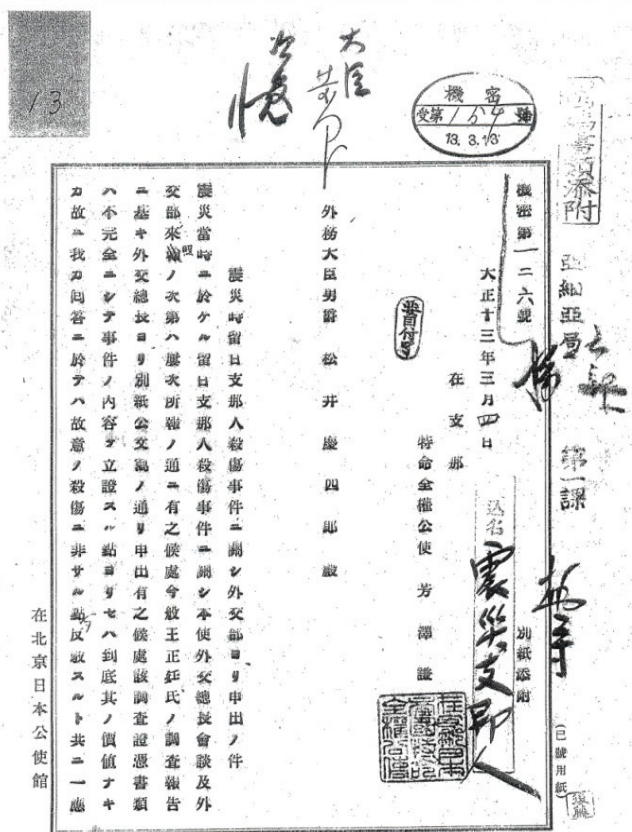 書類添附
亞細亞局
第一課
(已號用紙)
機密
受第154號
13.3.13
大臣
次官
13
機密第一二六號
別紙添附
大正十三年三月四日
在支那
特命全權公使 芳澤謙
書留付
外務大臣男爵 松井慶四郎殿
震災時留日支那人殺傷事件ニ關シ外交部ヨリ申出ノ件
震災當時ニ於ケル留日支那人殺傷事件ニ關シ本使外交總長會談及外
交部來報ノ次第ハ屢次所報ノ通ニ有之候處今般王正廷氏ノ調査報告
ニ基キ外交總長ヨリ別紙公文寫ノ通リ申出有之候處該調査證憑書類
ハ不完全ニシテ事件ノ内容ヲ立證スル點ヨリセハ到底其ノ價値ナキ
カ故ニ我カ回答ニ於テハ故意ノ殺傷ニ非サル點反駁スルト共ニ一應
在北京日本公使館
込名
震災支那人